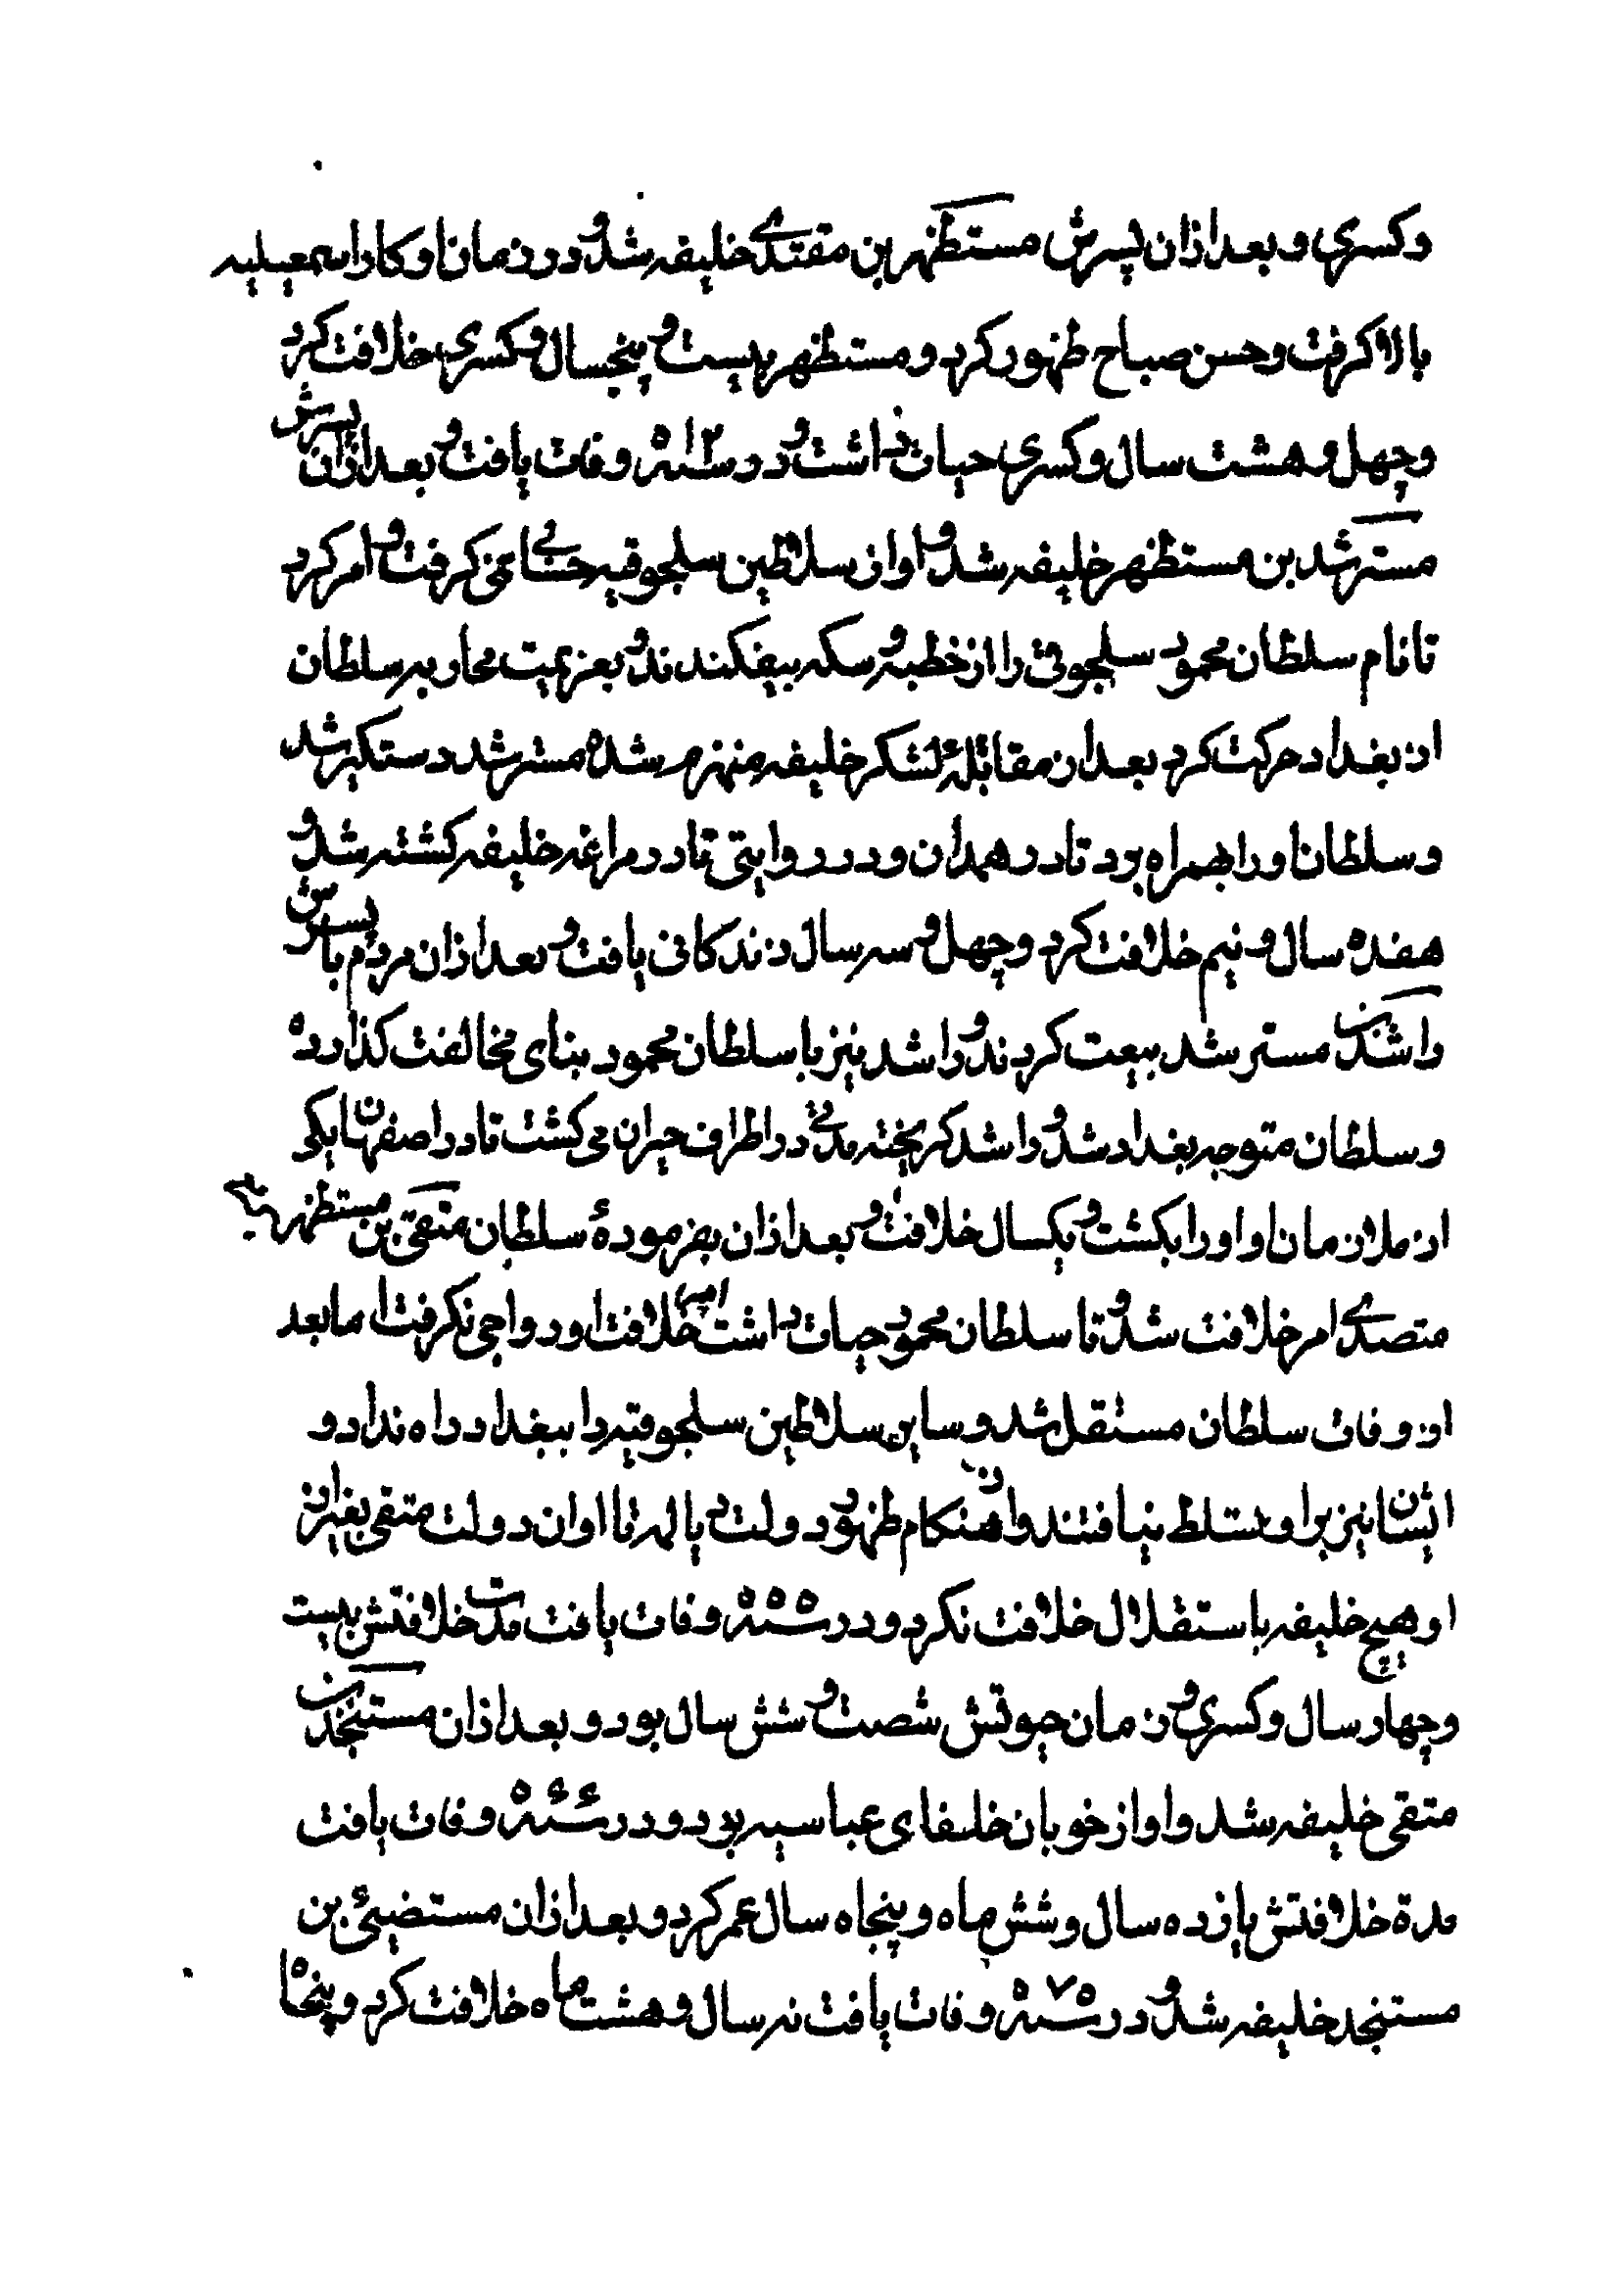 وکسری و بعد ازان پسرش مستظهر بن مقتدی خلیفه شد و در زمان او کار اسمعیلیه
بالا کرفت و حسن صباح ظهور کرد و مستظهر بیست و پنجسال و کسری خلافت کرد
و چهل و هشت سال و کسری حیات داشت و در سنه ۵۱۲ وفات یافت و بعد ازان پسرش
مسترشد بن مستظهر خلیفه شد و او از سلاطین سلجوقیه حسابی نمی کرفت و امر کرد
تا نام سلطان محمود سلجوقی را از خطبه و سکه بیفکندند و بعزیمت محاربه سلطان
از بغداد حرکت کرد بعد از مقابله لشکر خلیفه منهزم شده مسترشد دستکیر شد
و سلطان او را همراه برد تا در همدان و در روایتی تا در مراغه خلیفه کشته شد و
هفده سال و نیم خلافت کرد و چهل و سه سال زندکانی یافت و بعد ازان مردم با پسرش
راشد بن مسترشد بیعت کردند و راشد نیز با سلطان محمود بنای مخالفت کذارده
و سلطان متوجه بغداد شد و راشد کریخته مدتی در اطراف حیران می کشت تا در اصفهان یکی
از ملازمان او اورا بکشت و یکسال خلافت و بعد ازان بفرمودهٔ سلطان متقی بن مستظهر
متصدی امر خلافت شد و تا سلطان محمود حیات داشت امر خلافت او رواجی نکرفت اما بعد
از وفات سلطان مستقل شد و سایر سلاطین سلجوقیه را ببغداد راه نداد و
ایشان نیز برا و تسلط نیافتند و از هنکام ظهور دولت دیالمه تا اوان دولت متقی بغیر از
او هیچ خلیفه باستقلال خلافت نکرد و در سنه ۵۵۵ وفات یافت مدت خلافتش بیست
و چهار سال و کسری و زمان حیوتش شصت و شش سال بود و بعد ازان مستنجد بن
متقی خلیفه شد و او از خوبان خلفای عباسیه بود و در سنه ۵۶۶ وفات یافت
مدة خلافتش یازده سال و شش ماه و پنجاه سال عمر کرد و بعد ازان مستضیئ بن
مستنجد خلیفه شد و در سنه ۵۷۵ وفات یافت نه سال و هشت ماه خلافت کرد و پنجاه